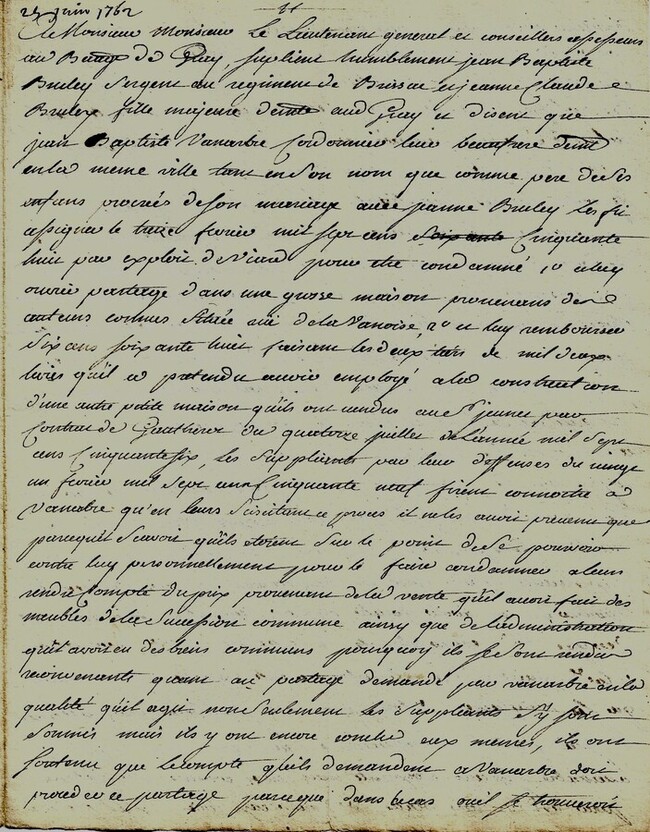 25 juin 1762
A Monsieur Monsieur Le Lieutenant general et conseillers assesseurs
au Bailliage de Gray, suplient humblement jean Baptiste
Bruley Sergent au regiment de Brissac et jeanne Claude
Bruley fille majeure dudit Gray et disent que
jean Baptiste Vanarbre Cordonnier leur beaufrere demt
en la meme ville tant en son nom que comme pere de ses
enfans procreés de son mariage avec jeanne Bruley les fit
assigner le fevrier mil sept cens Cinquante
huit par exploit de Viard pour etre condamné 1o a luy
ouvrir partage dans une grosse maison provenans des
auteurs communs Située rue de la Vanoise, 2o et luy rembourser
Six cens soixante huit faisant les deux tiers de mil deux
livres qu'il a pretendu avoir employé a la construction
d'une autre petite maison qu'ils ont vendus au Sr jeunet par
Contrat de Gauthier du quatorze juillet de l'année mil sept
cens Cinquante six, les Suppliants par leur deffenses du vingt
un fevrier mil sept cens Cinquante neuf firent connoitre a
Vanarbre qu'en leurs Suscitant ce proces il ne les avoit prevenu que
parcequ'il Scavoit qu'ils etoient Sur le point de Se pourvoir
contre luy personnellement pour le faire condamner a leurs
rendre Compte du prix provenant de la vente qu'il avoit fait des
meubles de la Sucession commune ainsy que de l'administration
qu'il avoit eu des biens communs pourquoy ils se Sont rendu
reconvenants quant au partage demandé par vanarbre en la
qualité qu'il agit non Seulement les Suppliants S'y sont
Soumis mais ils y ont encore conclu eux memes, ils ont
Soutenu que le compte qu'ils demandent a Vanarbre doit
preceder ce partage parceque dans le cas ou il se trouveroit